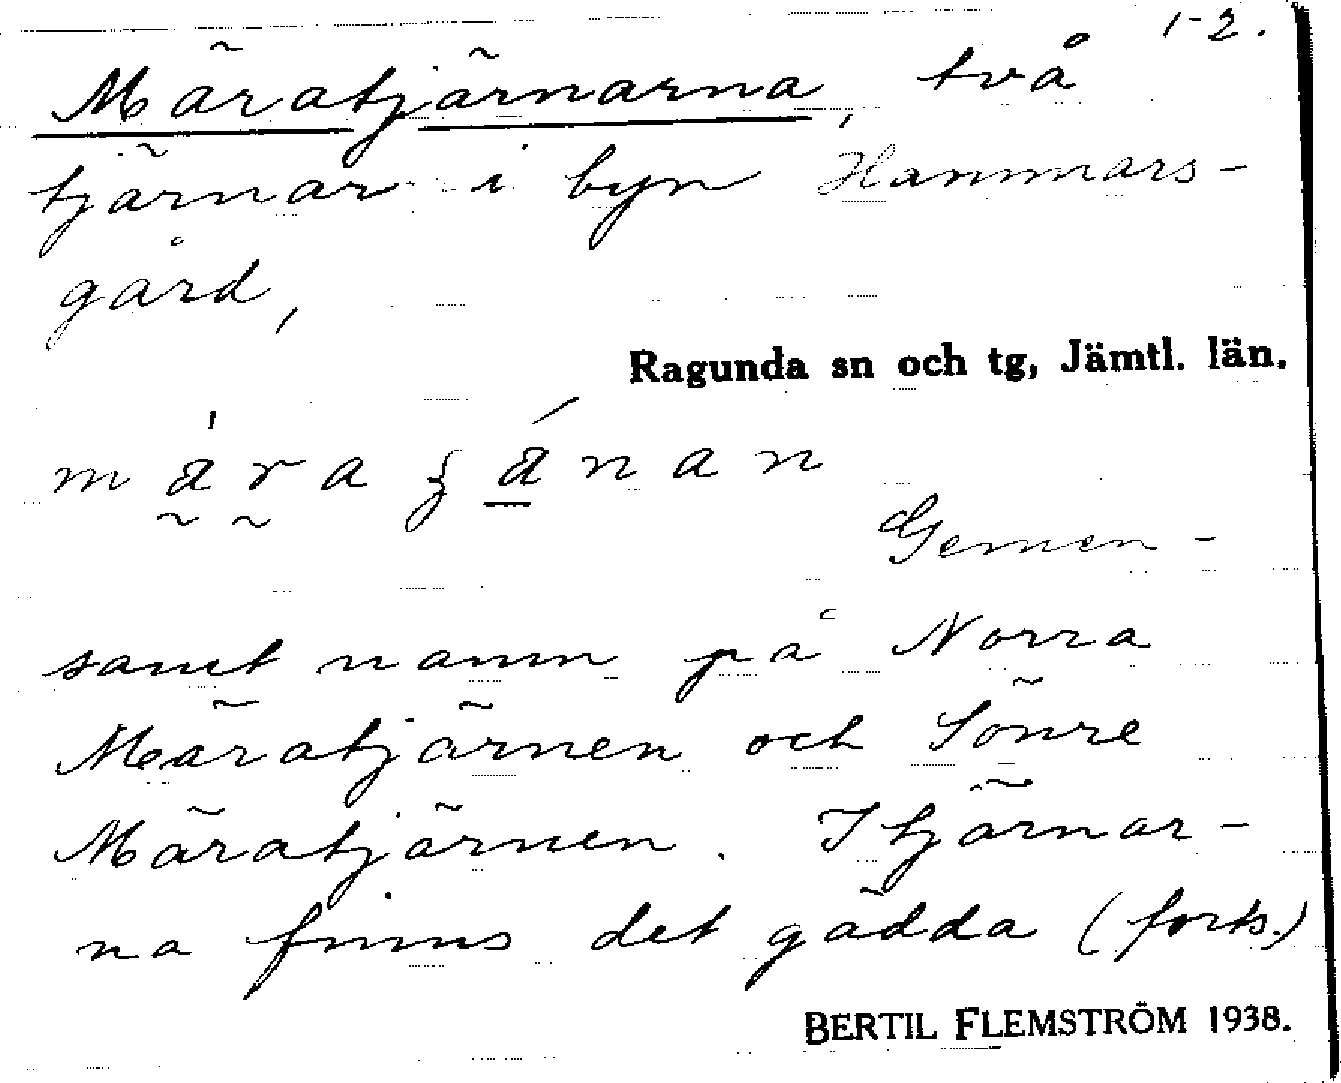 1-2.
Märatjärnarna, två
tjärnar i byn Hammars-
gård,
Ragunda sn och tg, Jämtl. län.
Gemen-
samt namn på Norra
Märatjärnen och Sönre
Märatjärnen. I tjärnar-
na finns det gädda (forts.)
BERTIL FLEMSTRÖM 1938.